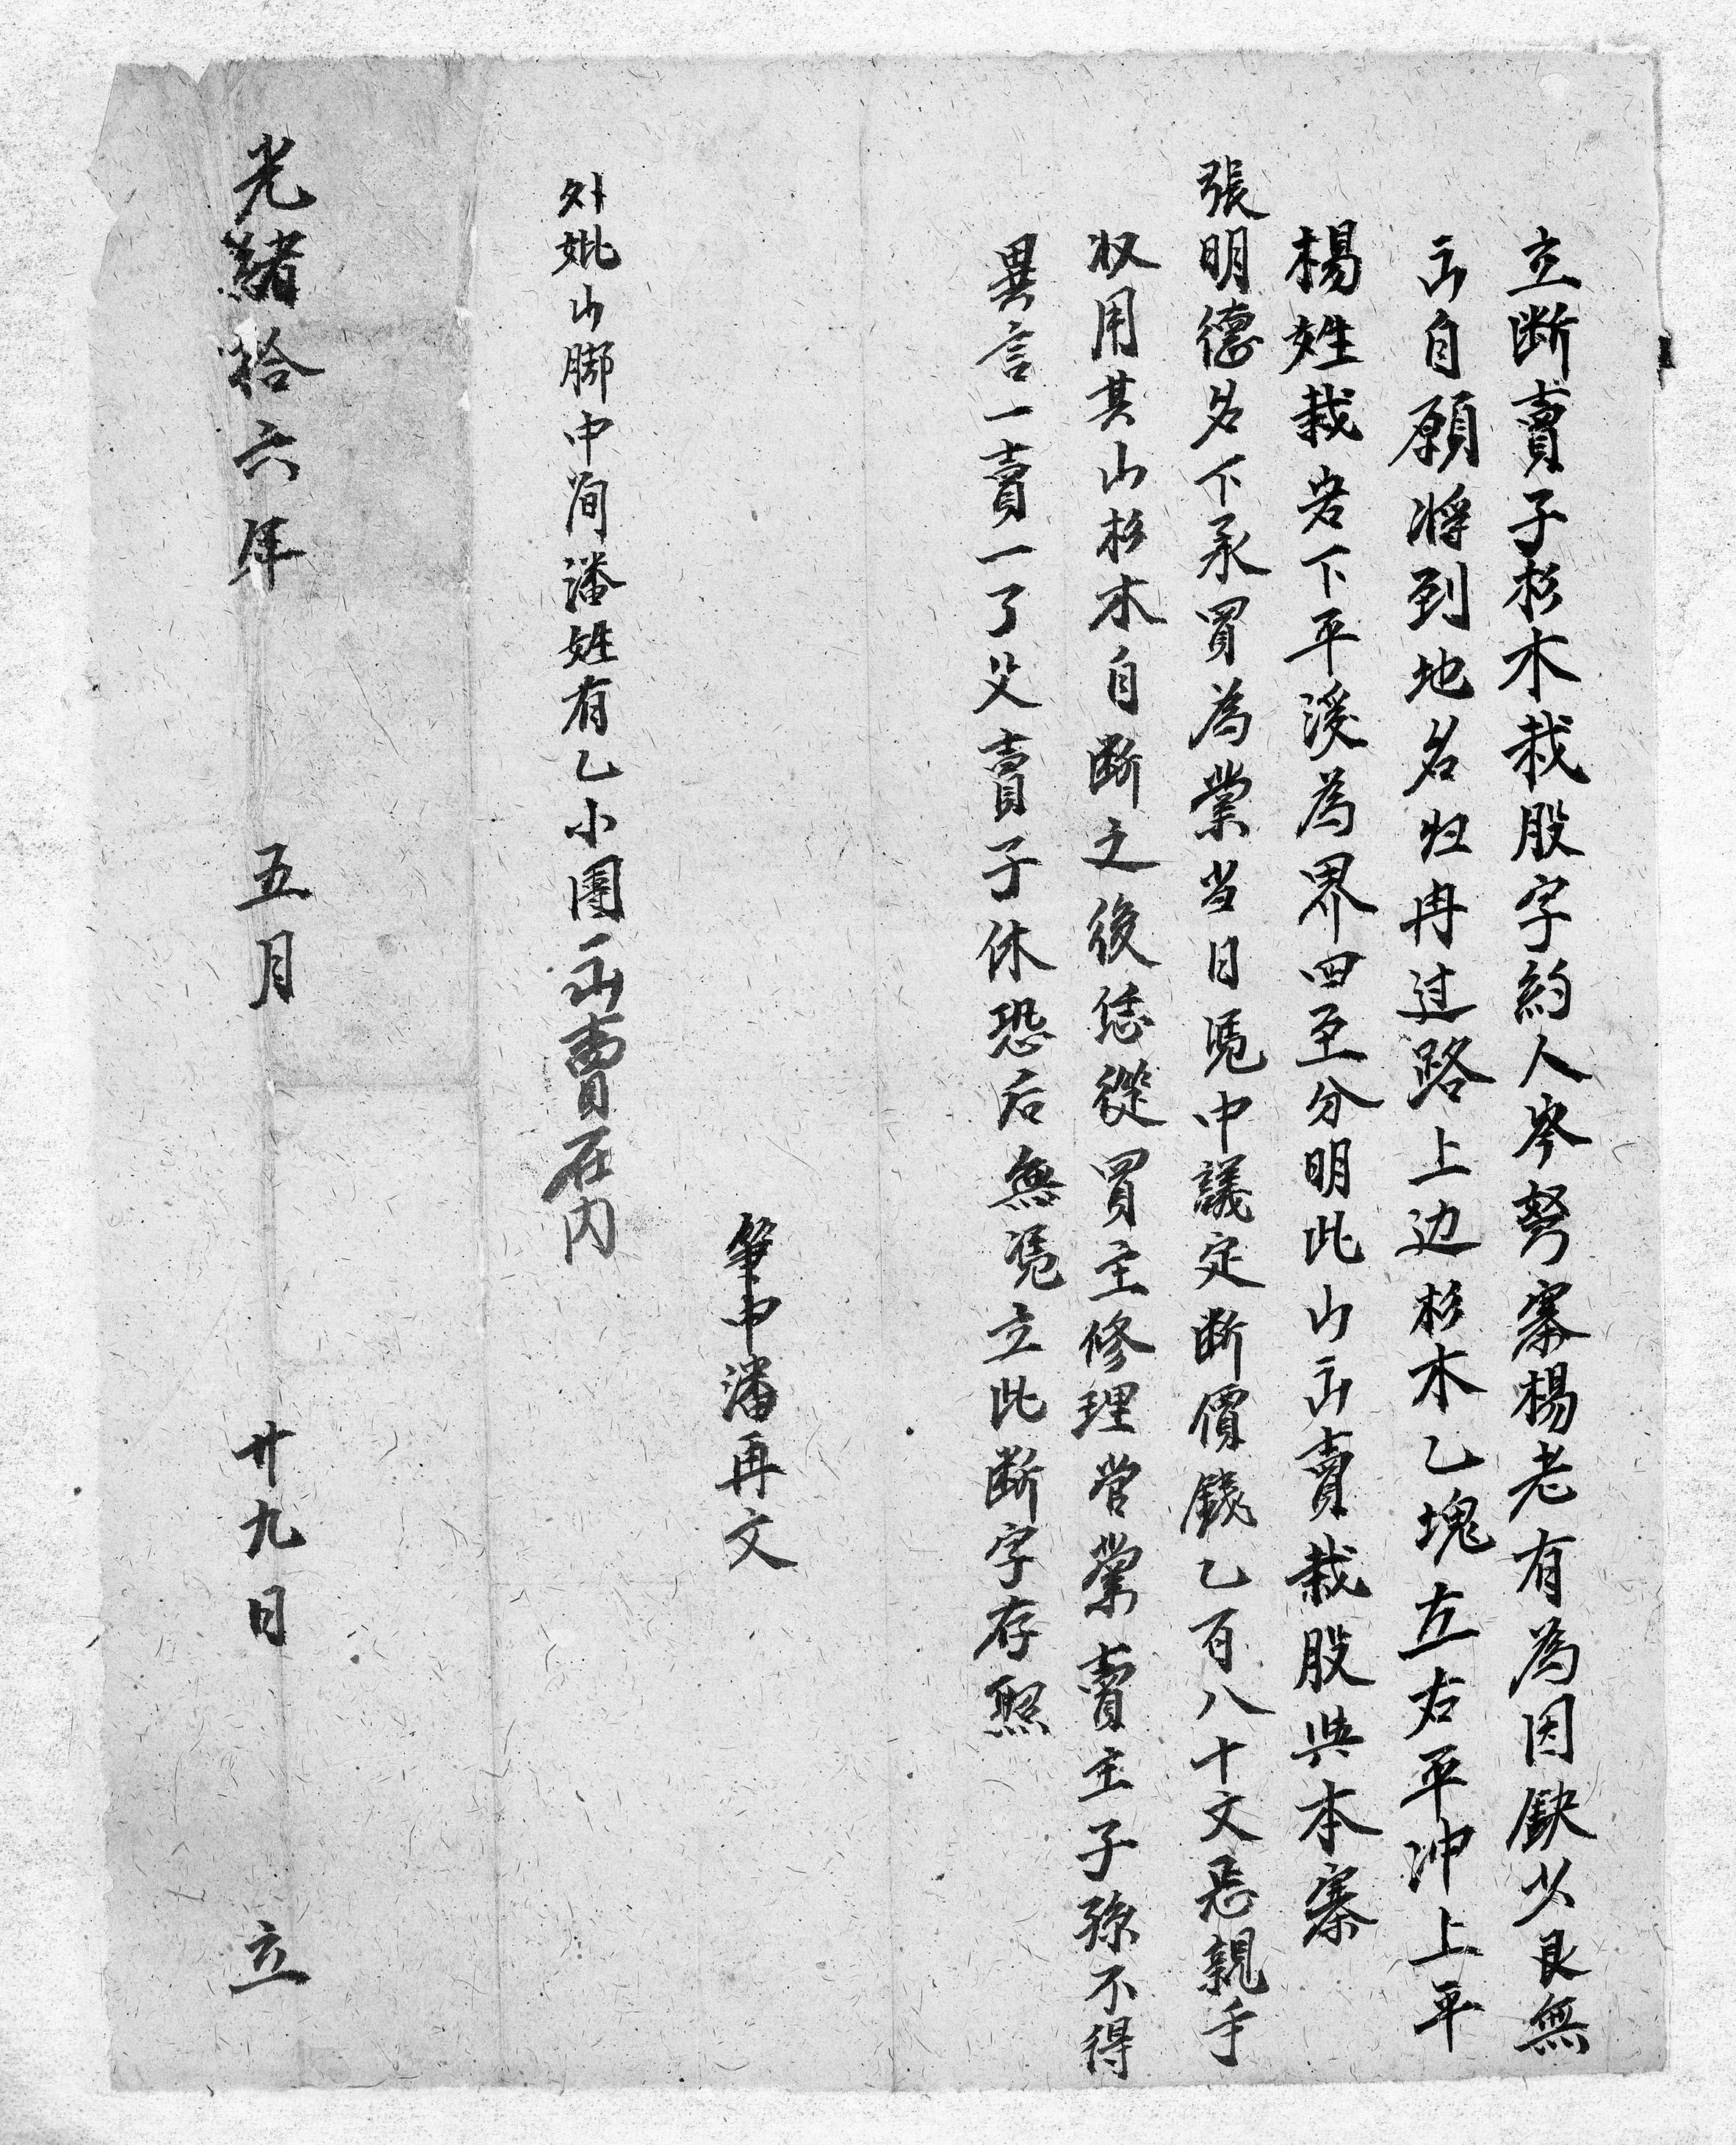 立断賣子杉木栽股字約人岑努寨楊老有為因缺少艮無
自願将到地名归冉过路上边杉木乙塊左右平冲上平
楊姓栽岩下平溪為界四至分明此山出賣栽股與本寨
張明德名下承買為業当日凭中議定断價錢乙百八十文悉親手
収用其山杉木自断之後恁從買主修理管業賣主子孫不得
異言一賣一了父賣子休恐后無凴立此断字存照
筆中潘再文
外妣山脚中間潘姓有乙小團出賣在内
光緒拾六年 五月 廿九日 立